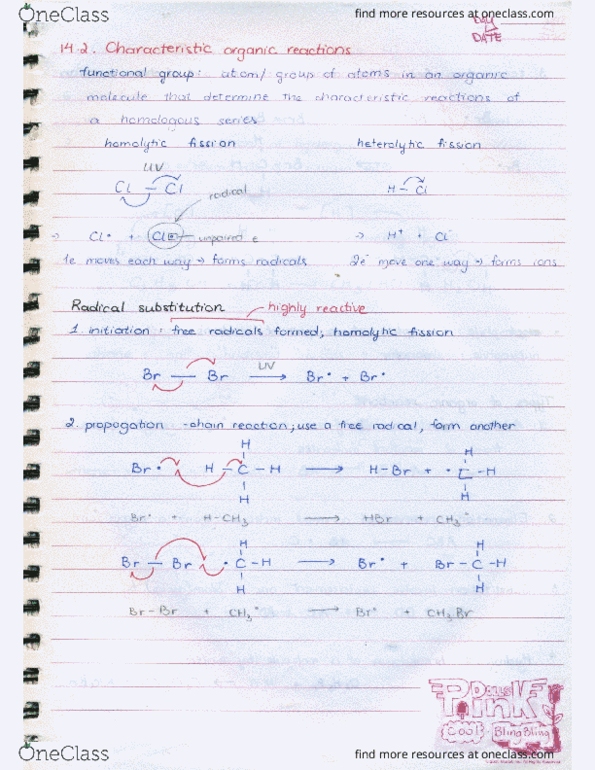 OneClass
find more resources at oneclass.com
DAY
DATE
14.2. Characteristic organic reactions
functional group: atom/ group of atoms in an organic
molecule that determine the characteristic reactions of
a homologous series
homolytic fission heterolytic fission
UV
Cl — Cl H — Cl
radical
→ Cl• + Cl• unpaired e → H⁺ + Cl⁻
1e moves each way → forms radicals 2e⁻ move one way → forms ions
Radical substitution highly reactive
1. initiation : free radicals formed, homolytic fission
Br — Br UV → Br• + Br•
2. propogation - chain reaction, use a free radical, form another
H H
Br• H — C — H → H-Br + •C-H
H H
Br• + H-CH₃ → HBr + CH₃•
H H
Br — Br •C-H → Br• + Br-C-H
H H
Br-Br + CH₃• → Br• + CH₃Br
Pink
Cool Bling Bling
OneClass
find more resources at oneclass.com